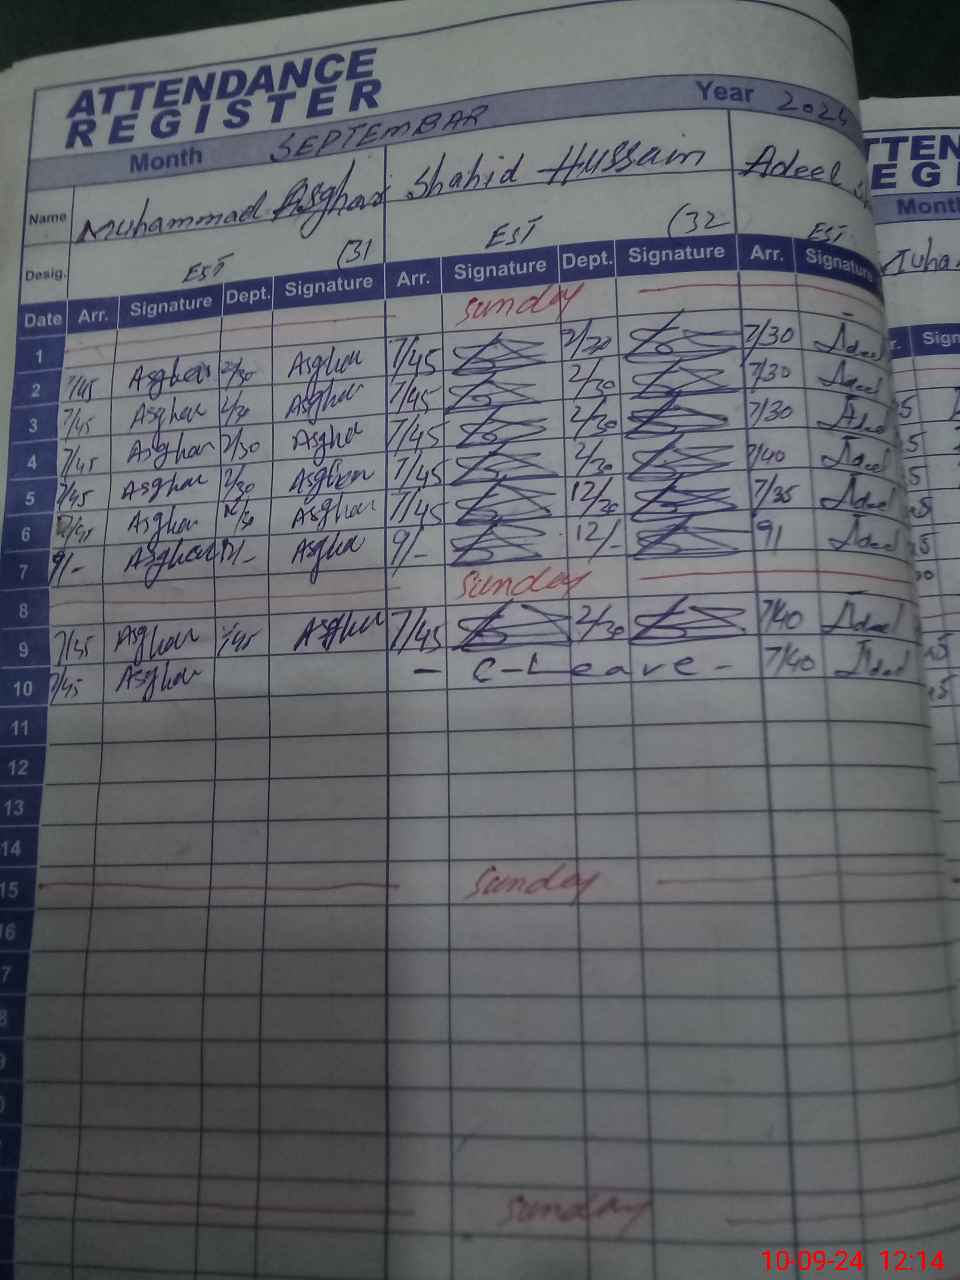 ATTENDANCE
REGISTER
Month SEPTEMBAR Year 2024
Name Muhammad Asghar Shahid Hussain Adeel
Desig. EST (31 EST (32 EST
Date Arr. Signature Dept. Signature Arr. Signature Dept. Signature Arr. Signature
1 Sunday
2 7/45 Asghar 2/30 Asghar 7/45 2/30 7/30 Adeel
3 7/45 Asghar 2/30 Asghar 7/45 2/30 7/30 Adeel
4 7/45 Asghar 2/30 Asghar 7/45 2/30 7/30 Adeel
5 7/45 Asghar 2/30 Asghar 7/45 2/30 7/40 Adeel
6 Asghar 12/30 Asghar 7/45 12/30 7/35 Adeel
7 9/- Asghar 12/- Asghar 9/- 12/- 9/ Adeel
8 Sunday
9 7/45 Asghar Asghar 7/45 2/30 7/40 Adeel
10 7/45 Asghar - C-Leave - 7/40 Adeel
11
12
13
14
15 Sunday
16
7
8
9
0
Sunday
ATTEN
EGI
Month
Signa
10-09-24 12:14